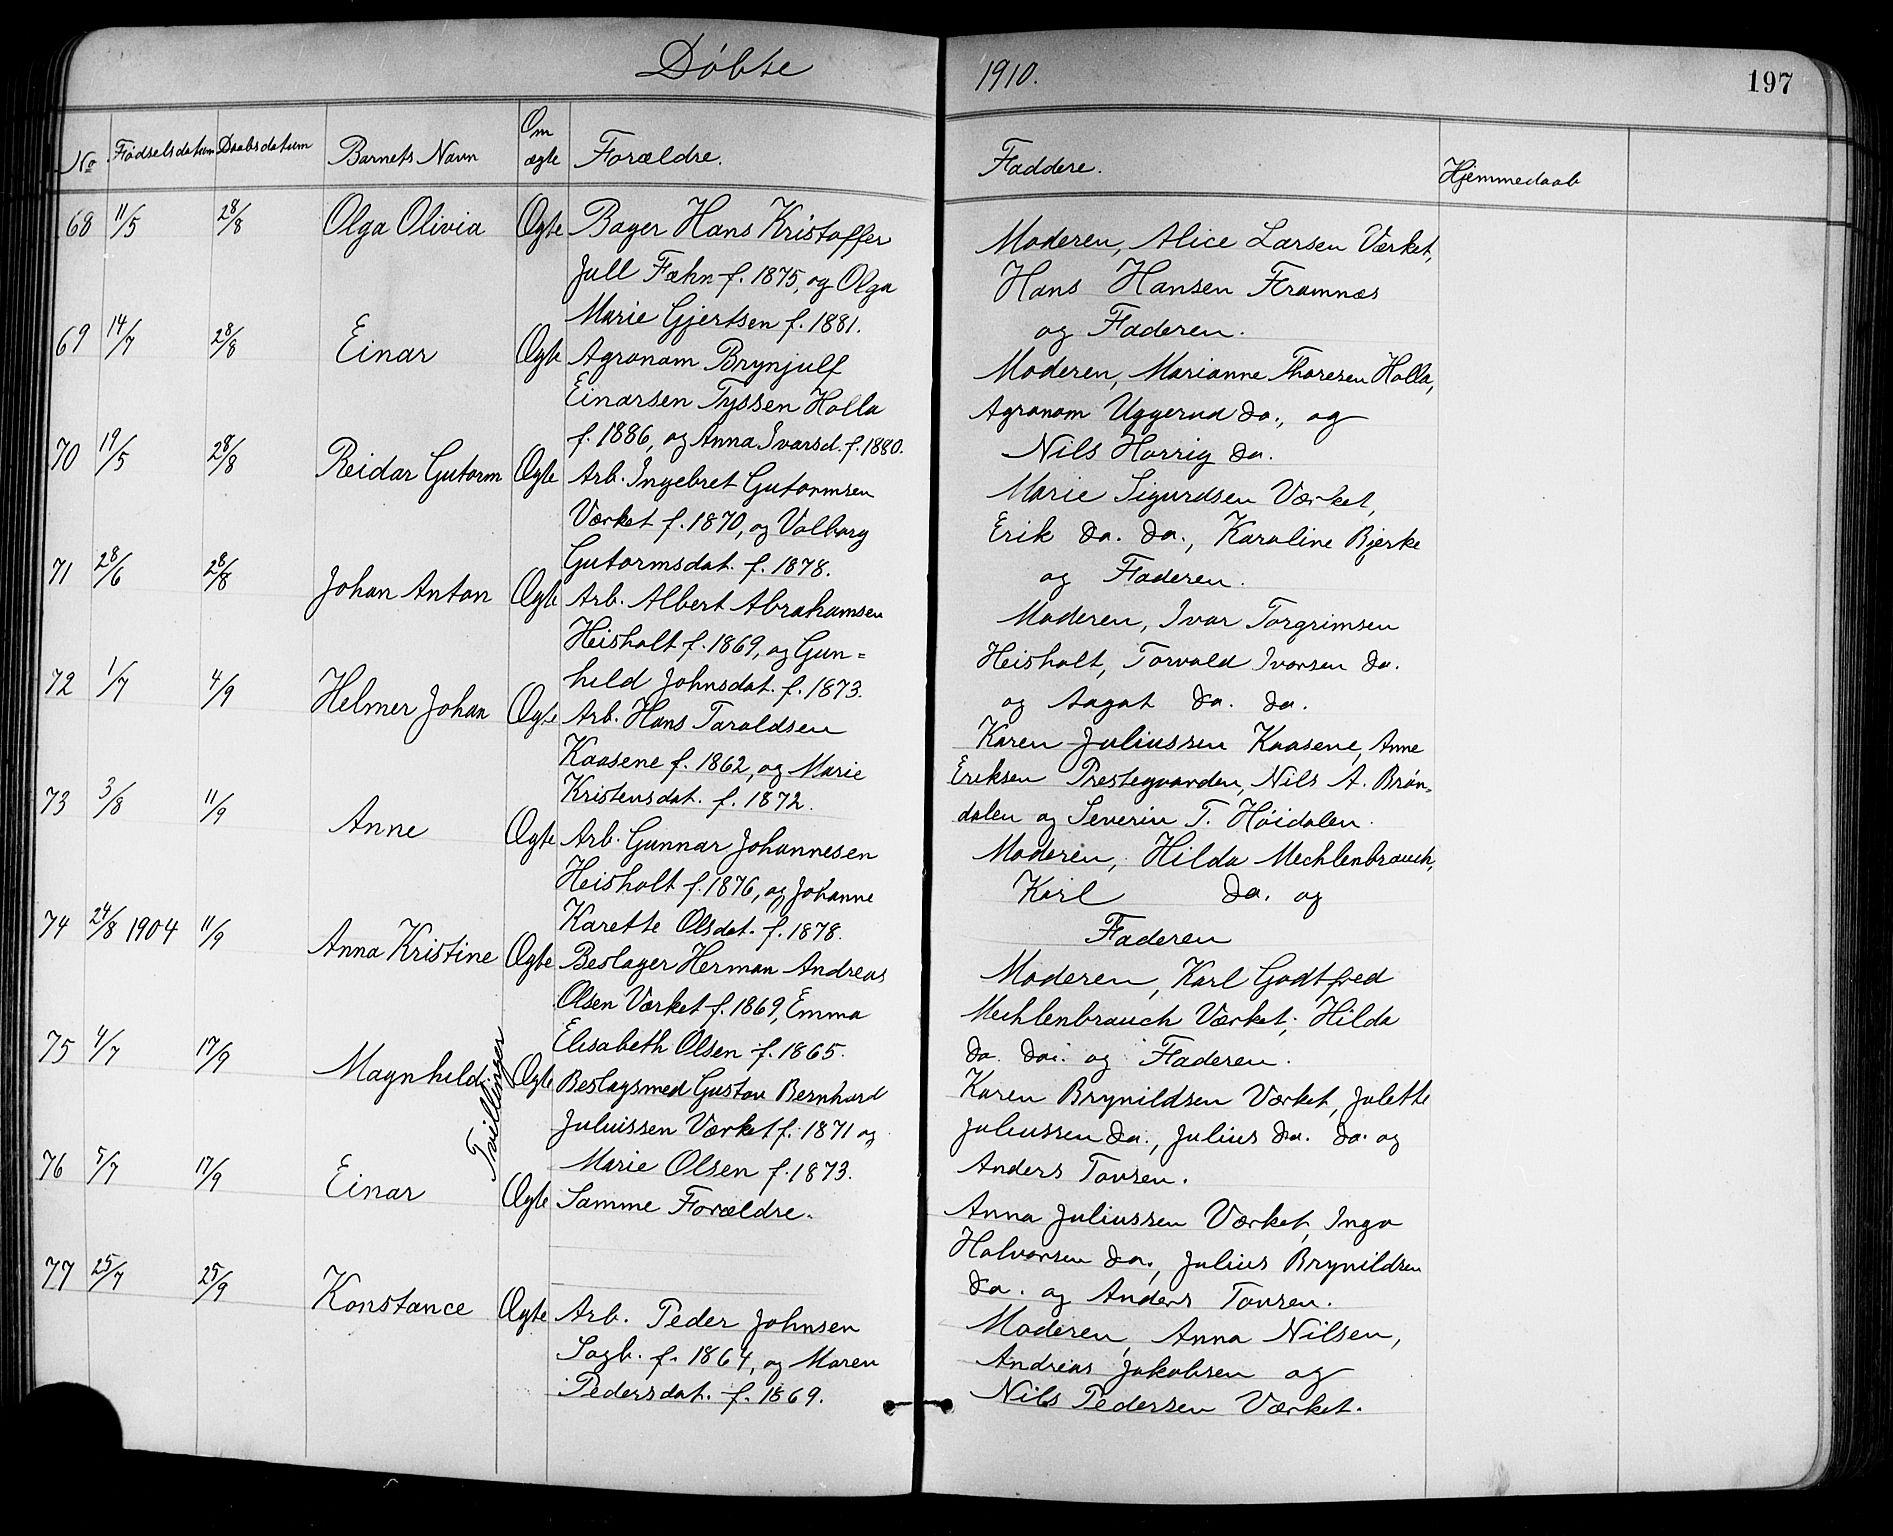 Døbte 1910. 197
No Fødselsdatum Daabsdatum Barnets Navn Om ægte Forældre. Faddere. Hjemmedaab
68 11/5 28/8 Olga Olivia Ægte Bager Hans Kristoffer
Jull Fæhn f. 1875, og Olga
Marie Gjertsen f. 1881.
Moderen, Alice Larsen Værket,
Hans Hansen Framnæs
og Faderen.
69 14/7 28/8 Einar Ægte Agronom Brynjulf
Einarsen Tyssen Holla
f. 1886, og Anna Ivarsd. f. 1880.
Moderen, Marianne Thoresen Holla,
Agronom Uggerud do., og
Nils Horrig do.
70 19/5 28/8 Reidar Gutorm Ægte Arb. Ingebret Gutormsen
Værket f. 1870, og Valborg
Gutormsdat. f. 1878.
Marie Sigurdsen Værket,
Erik do. do., Karoline Bjerke
og Faderen.
71 28/6 28/8 Johan Anton Ægte Arb. Albert Abrahamsen
Heisholt f. 1869, og Gun=
hild Johnsdat. f. 1873.
Moderen, Ivar Torgrimsen
Heisholt, Torvald Ivarsen do.
og Aagot do. do.
72 1/7 4/9 Helmer Johan Ægte Arb. Hans Taraldsen
Kaasene f. 1862, og Marie
Kristensdat. f. 1872.
Karen Juliussen Kaasene, Anne
Eriksen Prestegaarden, Nils A. Brøn=
dalen og Severin T. Høidalen.
73 3/8 11/9 Anne Ægte Arb. Gunnar Johannesen
Heisholt f. 1876, og Johanne
Karette Olsdat. f. 1878.
Moderen, Hilda Mechlenbrauch,
Karl do. og
Faderen
74 24/8 1904 11/9 Anna Kristine Ægte Beslager Herman Andreas
Olsen Værket f. 1869, Emma
Elisabeth Olsen f. 1865.
Moderen, Karl Godtfred
Mechlenbrauch Værket, Hilda
do. do. og Faderen.
75 4/7 17/9 Magnhild Tvillinger Ægte Beslagsmed Gustav Bernhard
Juliussen Værket f. 1871 og
Marie Olsen f. 1873.
Karen Brynildsen Værket, Julette
Juliussen do., Julius do. do. og
Anders Tovsen.
76 5/7 17/9 Einar Ægte Samme Forældre.
Anna Juliussen Værket, Inga
Halvorsen do., Julius Brynildsen
do. og Anders Tovsen.
77 25/7 25/9 Konstance Ægte Arb. Peder Johnsen
Sagb. f. 1864, og Maren
Pedersdat. f. 1869.
Moderen, Anna Nilsen,
Andreas Jakobsen og
Nils Pedersen Værket.